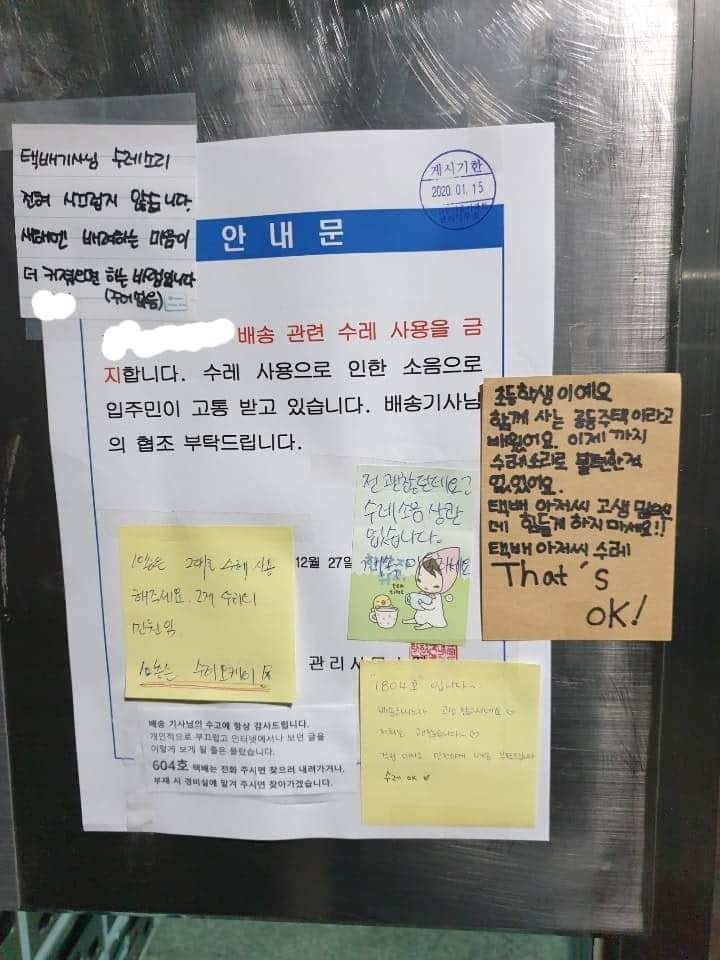 택배기사님 수레소리
전혀 시끄럽지 않습니다.
새해엔 배려하는 마음이
더 커졌으면 하는 바램입니다
(주어없음)
게시기한
2020.01.15
안내문
배송 관련 수레 사용을 금
지합니다. 수레 사용으로 인한 소음으로
입주민이 고통 받고 있습니다. 배송기사님
의 협조 부탁드립니다.
초등학생이예요
함께 사는 공동주택이라고
배웠어요. 이제까지
수레소리로 불편한적
없었어요.
택배 아저씨 고생 많은
데 힘들게 하지마세요!!
택배 아저씨 수레
That's
OK!
전 괜찮던데요?
수레소음 상관
없습니다.
tea
time
12월 27일
수레 사용
해주세요.
수레오케이
관리사무소
배송 기사님의 수고에 항상 감사드립니다.
개인적으로 부끄럽고 인터넷에서나 보던 글을
이렇게 보게 될 줄은 몰랐습니다.
604호 택배는 전화 주시면 찾으러 내려가거나,
부재 시 경비실에 맡겨 주시면 찾아가겠습니다.
1804호 입니다~
저희는 괜찮습니다~
수레 OK